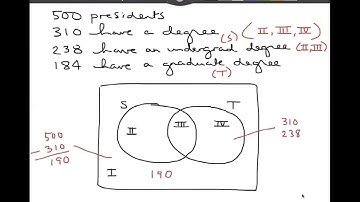 500 presidents
310 have a degree (S) (II, III, IV)
238 have an undergrad degree (II, III)
184 have a graduate degree (T)
S T
II III IV
500
310
190
310
238
I 190